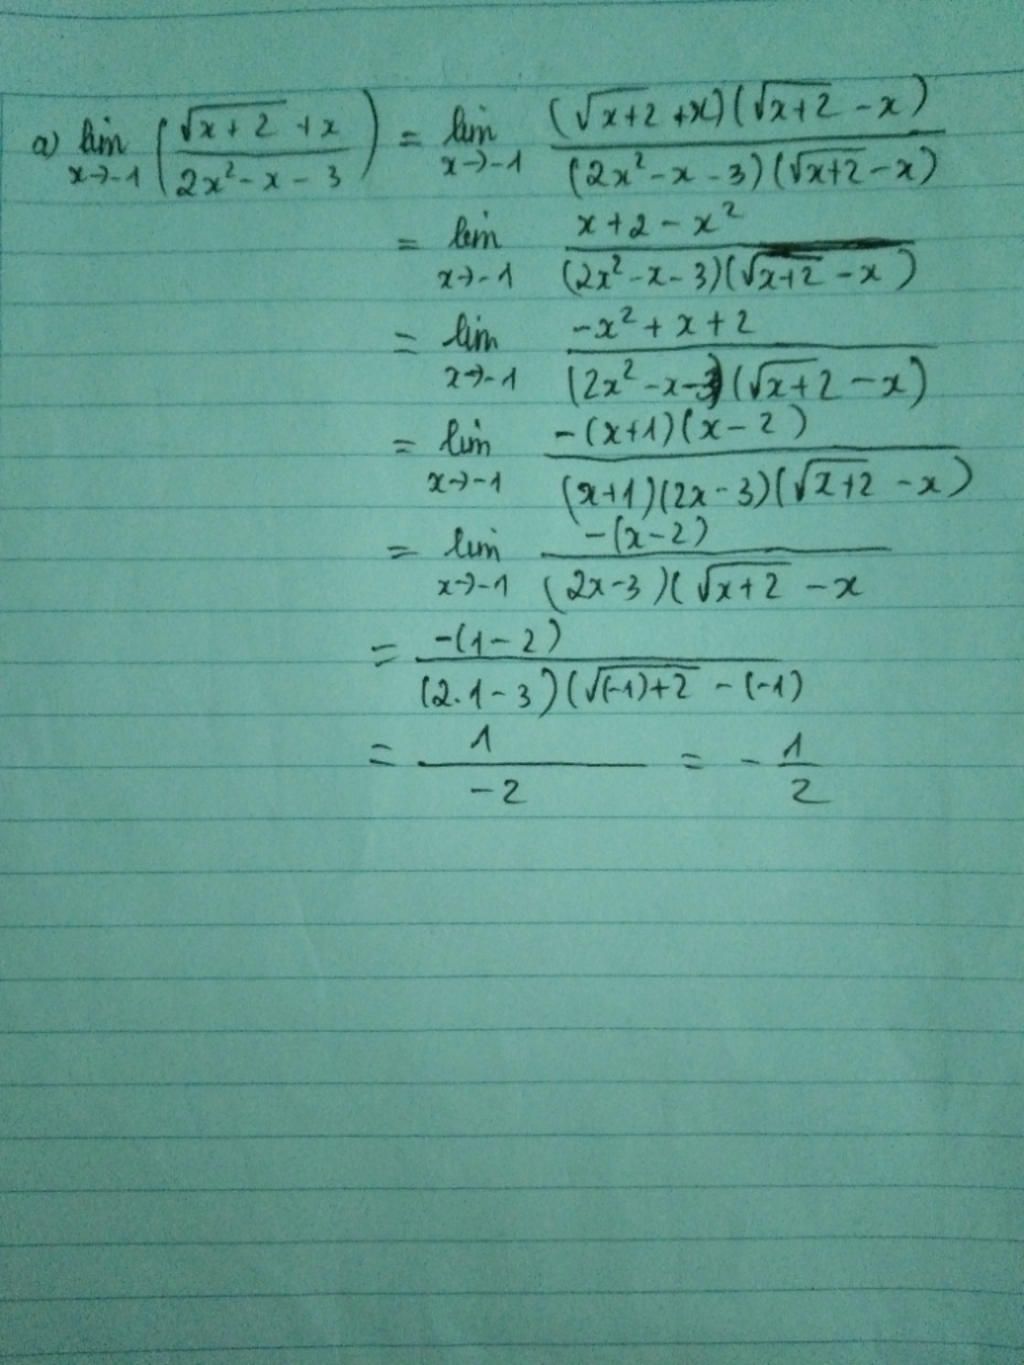 a) lim x→-1 ( (√(x+2) + x) / (2x² - x - 3) ) = lim x→-1 (√(x+2) + x)(√(x+2) - x) / (2x² - x - 3)(√(x+2) - x)
= lim x→-1 x + 2 - x² / (2x² - x - 3)(√(x+2) - x)
= lim x→-1 -x² + x + 2 / (2x² - x - 3)(√(x+2) - x)
= lim x→-1 -(x+1)(x-2) / (x+1)(2x-3)(√(x+2) - x)
= lim x→-1 -(x-2) / (2x-3)(√(x+2) - x
= -(1-2) / (2.1-3)(√((-1)+2) - (-1)
= 1 / -2 = - 1/2